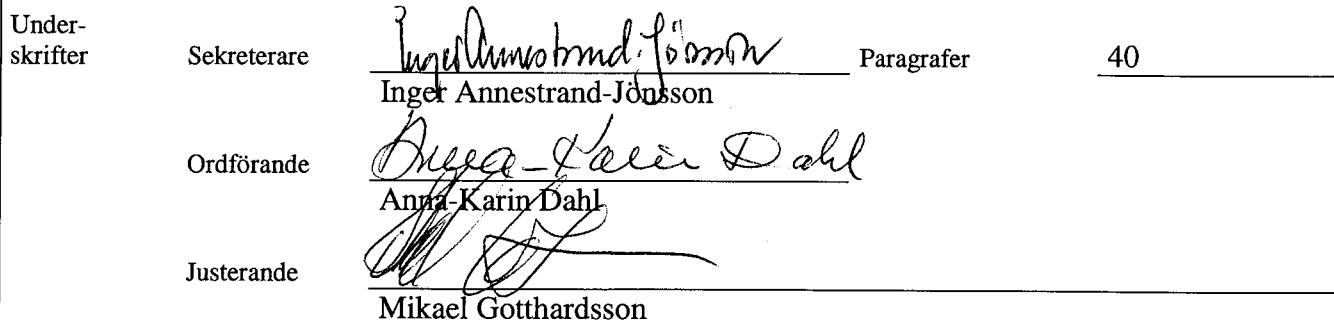 Under-
skrifter Sekreterare Inger Annestrand-Jönsson Paragrafer 40
Inger Annestrand-Jönsson
Ordförande Anna-Karin Dahl
Anna-Karin Dahl
Justerande
Mikael Gotthardsson